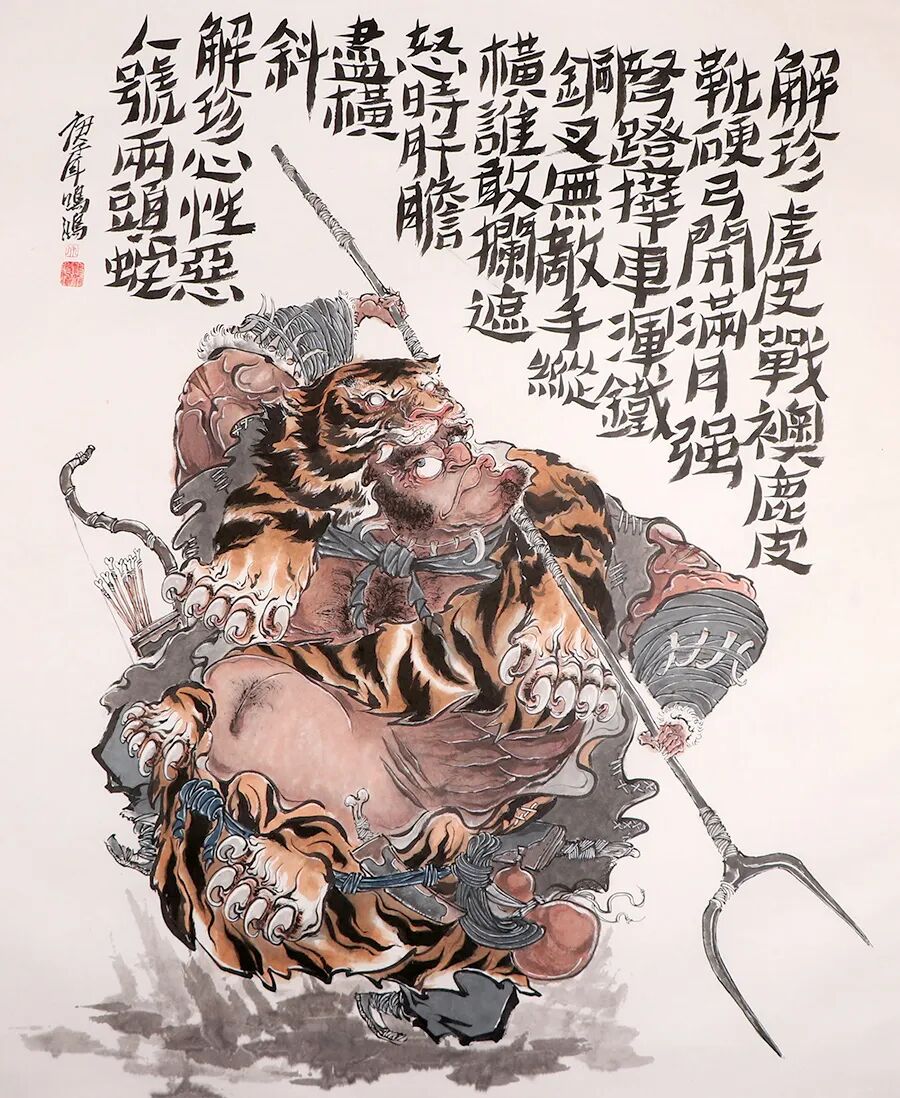 解珍虎皮戰襖鹿皮
靴硬弓開滿月强
弩蹬撶車渾鐵
鋼叉無敵手縱
橫誰敢攔遮
怒時肝膽
盡橫
斜
解珍心性惡
人號兩頭蛇
庚子年鳴鴻